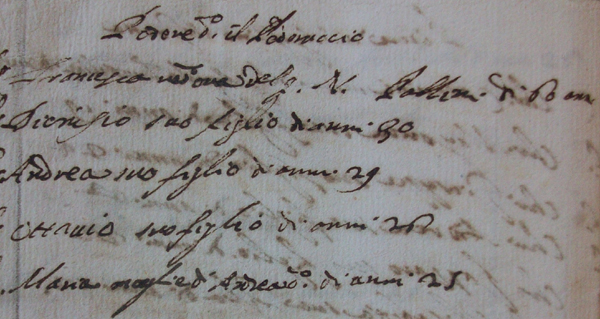 Podere d.° il Poderuccio
Francesca vedova del q. N. Pallini di 60 anni
Dionisio suo figlio di anni 30
Andrea suo figlio di anni 29
Ottavio suo figlio di anni 26
Maria mog.e di Andrea d.° di anni 25